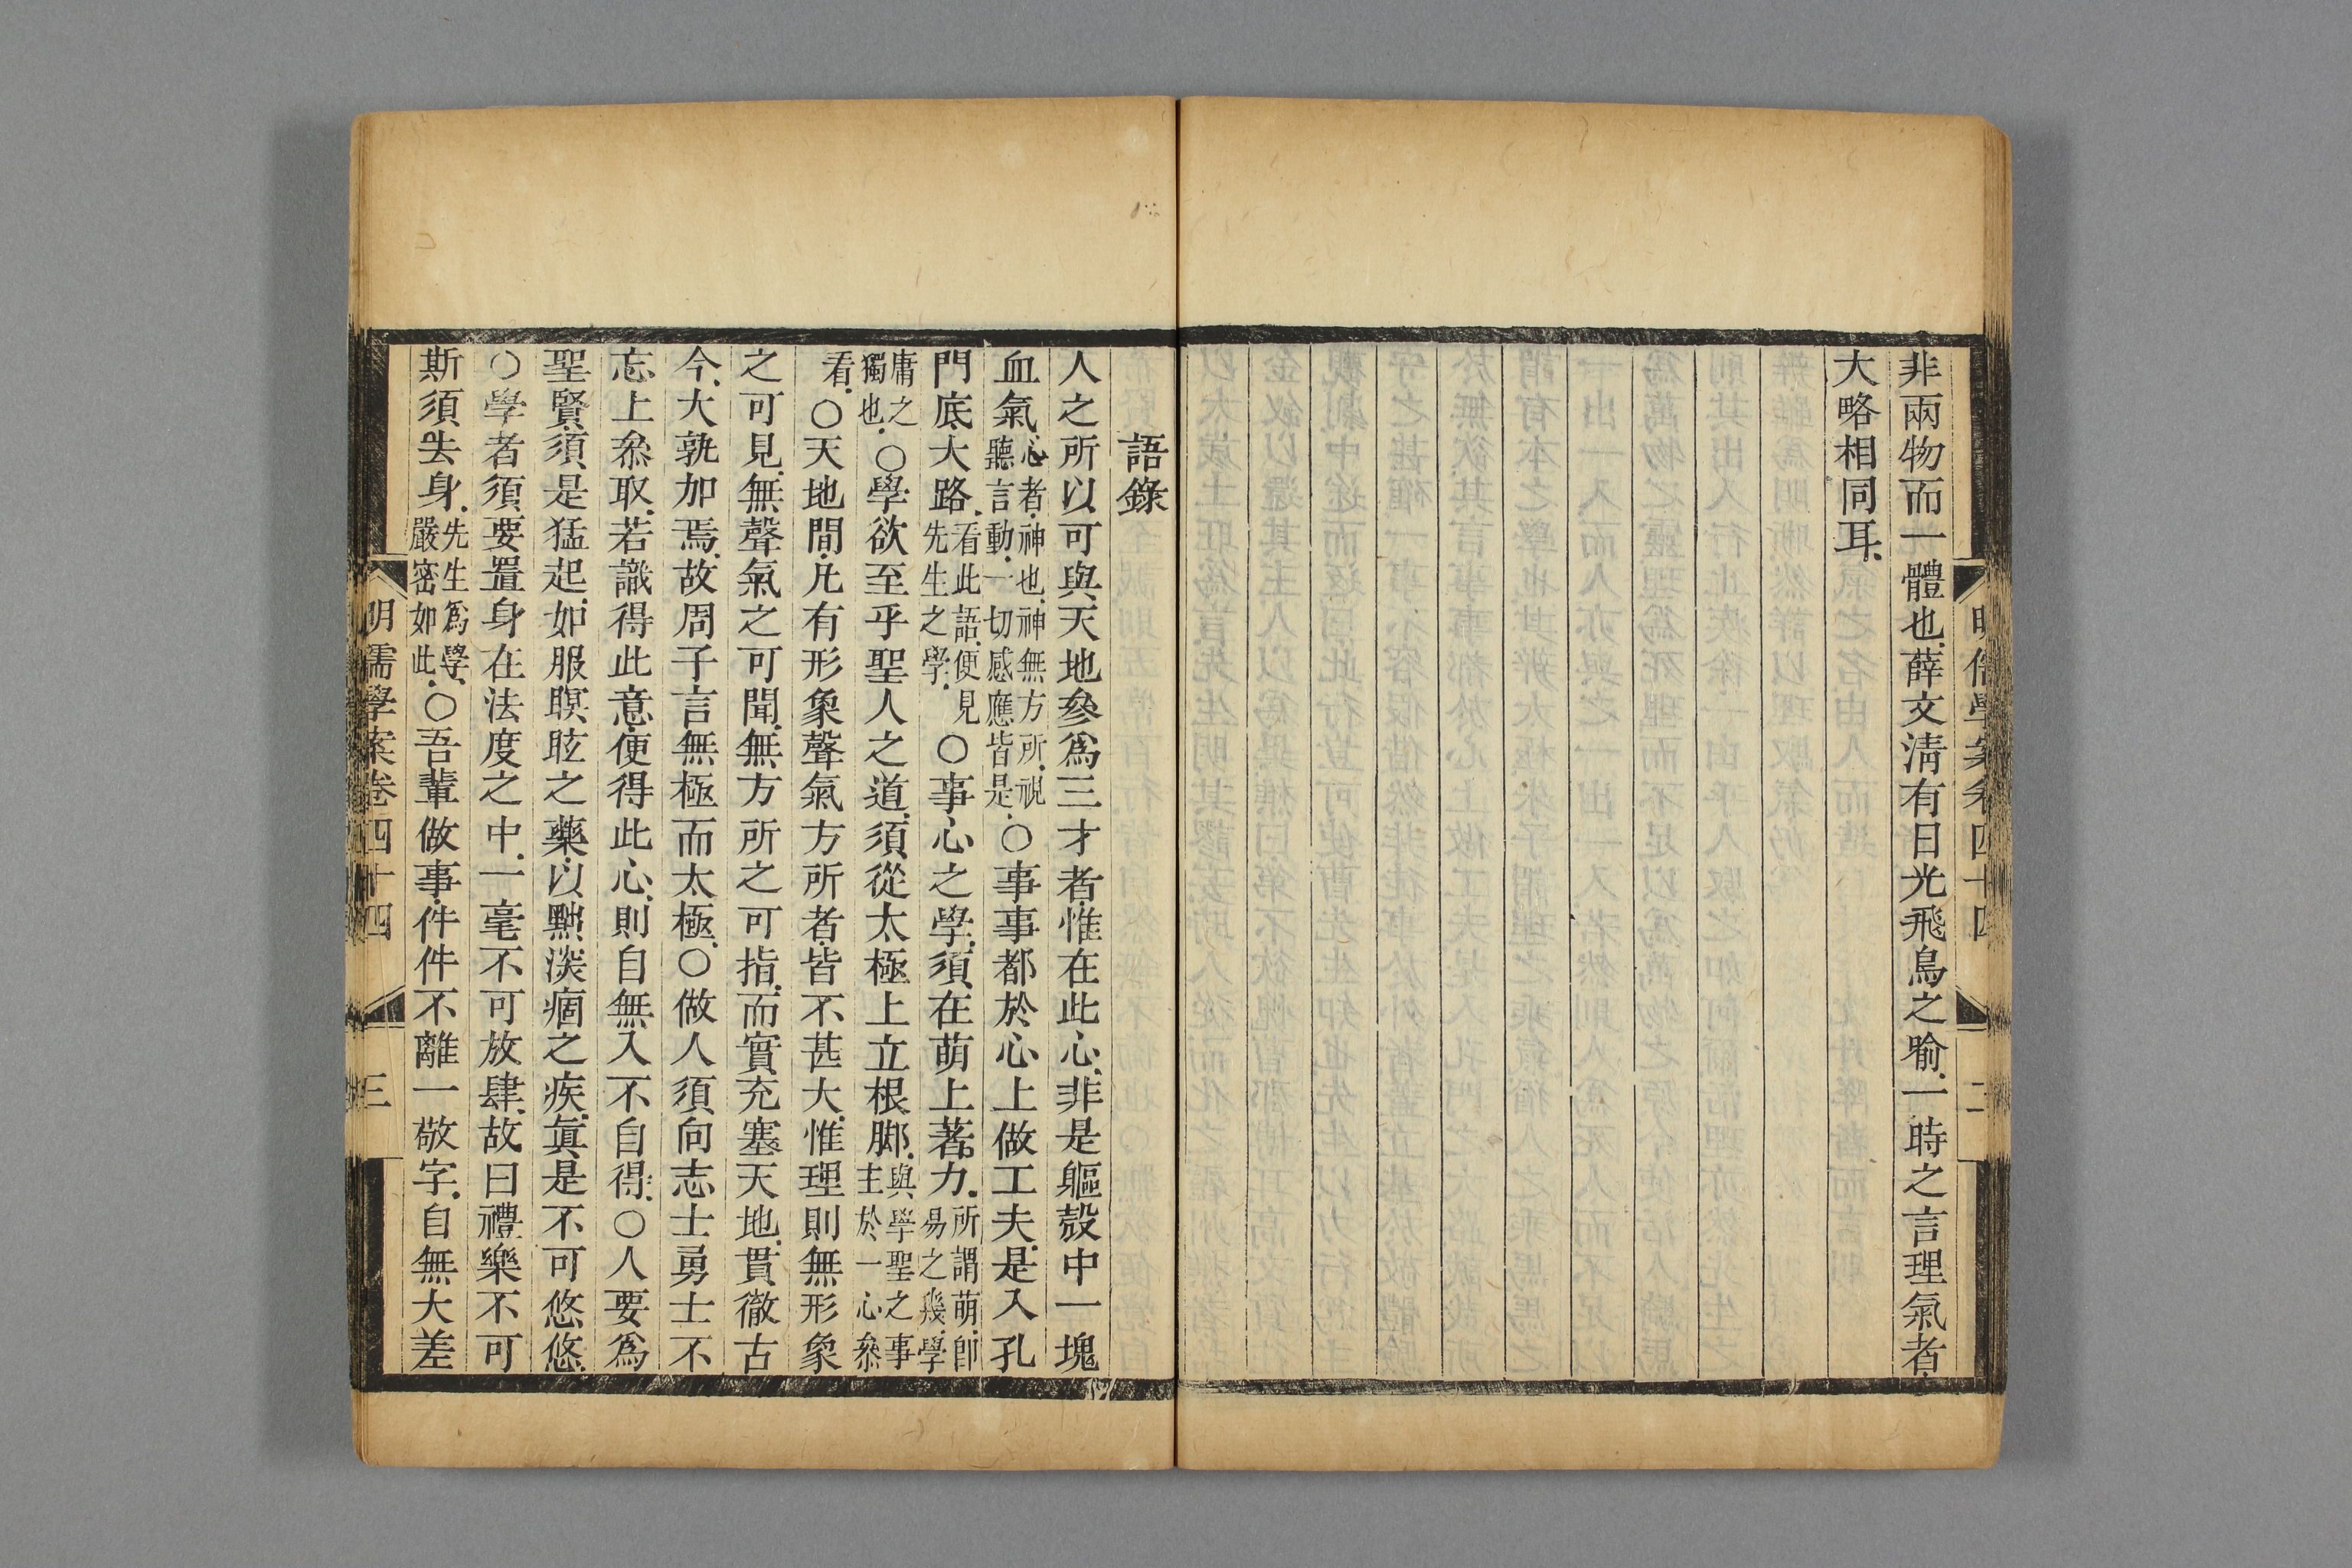 非兩物而一體也.薛文淸有日光飛鳥之喻.一時之言理氣者.
大略相同耳.
明儒學案卷四十四
二
語錄
人之所以可與天地參爲三才者.惟在此心.非是軀殼中一塊
血氣.心者.神也.神無方所.視聽言動.一切感應皆是.○事事都於心上做工夫.是入孔
門底大路.看此語.便見先生之學.○事心之學.須在萌上著力.所謂萌.卽易之幾.學
庸之獨也.○學欲至乎聖人之道.須從太極上立根脚.與學聖之事主於一心叅
看.○天地間.凡有形象聲氣方所者.皆不甚大.惟理則無形象
之可見.無聲氣之可聞.無方所之可指.而實充塞天地.貫徹古
今.大孰加焉.故周子言無極而太極.○做人須向志士勇士不
忘上叅取.若識得此意.便得此心.則自無入不自得.○人要爲
聖賢.須是猛起.如服瞑眩之藥.以黥淡痼之疾.眞是不可悠悠.
○學者須要置身在法度之中.一毫不可放肆.故曰禮樂不可
斯須去身.先生爲學.嚴密如此.○吾輩做事.件件不離一敬字.自無大差
明儒學案卷四十四
三